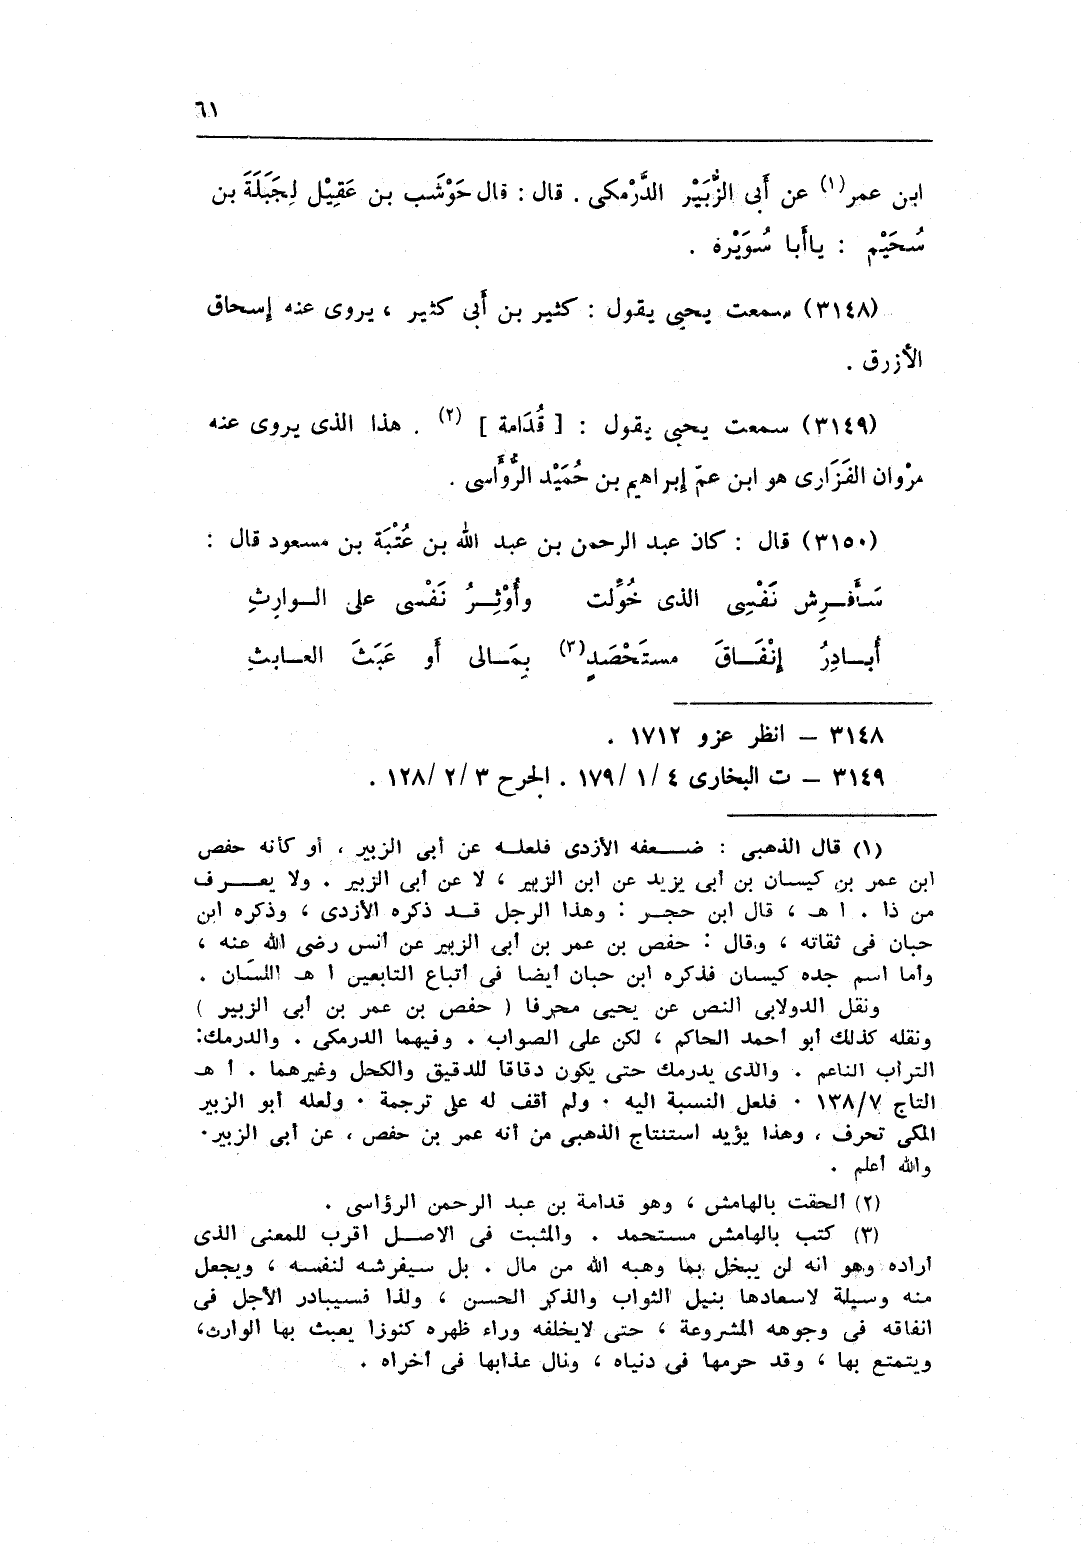 ٦١
ابن عمر(١) عن أَبى الزُّبَيْر الدَّرْمكى . قال : قال حَوْشَب بن عَقِيْل لِجَبَلَةَ بن
سُحَيْم : ياأَبا سُوَيْرة .
(٣١٤٨) سمعت يحيى يقول : كثير بن أَبى كثير ، يروى عنه إسحاق
الأزرق .
(٣١٤٩) سمعت يحيى يقول : [ قُدَامة ] (٢) . هذا الذى يروى عنه
مرْوان الفَزَارى هو ابن عمّ إبراهيم بن حُمَيْد الرُّؤَاسى .
(٣١٥٠) قال : كان عبد الرحمن بن عبد الله بن عُتْبَة بن مسعود قال :
سَأَفرِش نَفْسِى الذى خُوِّلت وأُوْثِرُ نَفْسى على الوارِثِ
أُبادِرُ إنْفَاقَ مستَحْصَدٍ(٣) بِمَالى أو عَبَثَ العابثِ
٣١٤٨ – انظر عزو ١٧١٢ .
٣١٤٩ – ت البخارى ٤ /١ /١٧٩ . الجرح ٣ /٢ /١٢٨ .
(١) قال الذهبى : ضعفه الأزدى فلعله عن أبى الزبير ، أو كأنه حفص
ابن عمر بن كيسان بن أبى يزيد عن ابن الزبير ، لا عن أبى الزبير . ولا يعرف
من ذا . ا هـ ، قال ابن حجر : وهذا الرجل قد ذكره الأزدى ، وذكره ابن
حبان فى ثقاته ، وقال : حفص بن عمر بن أبى الزبير عن أنس رضى الله عنه ،
وأما اسم جده كيسان فذكره ابن حبان أيضا فى أتباع التابعين ا هـ اللسان .
ونقل الدولابى النص عن يحيى محرفا ( حفص بن عمر بن أبى الزبير )
ونقله كذلك أبو أحمد الحاكم ، لكن على الصواب . وفيهما الدرمكى . والدرمك:
التراب الناعم . والذى يدرمك حتى يكون دقاقا للدقيق والكحل وغيرهما . أ هـ
التاج ١٣٨/٧ . فلعل النسبة اليه . ولم أقف له على ترجمة . ولعله أبو الزبير
المكى تحرف ، وهذا يؤيد استنتاج الذهبى من أنه عمر بن حفص ، عن أبى الزبير.
والله أعلم .
(٢) ألحقت بالهامش ، وهو قدامة بن عبد الرحمن الرؤاسى .
(٣) كتب بالهامش مستحمد . والمثبت فى الاصل اقرب للمعنى الذى
أراده وهو انه لن يبخل بما وهبه الله من مال . بل سيفرشه لنفسه ، ويجعل
منه وسيلة لاسعادها بنيل الثواب والذكر الحسن ، ولذا فسيبادر الأجل فى
انفاقه فى وجوهه المشروعة ، حتى لايخلفه وراء ظهره كنوزا يعبث بها الوارث،
ويتمتع بها ، وقد حرمها فى دنياه ، ونال عذابها فى أخراه .